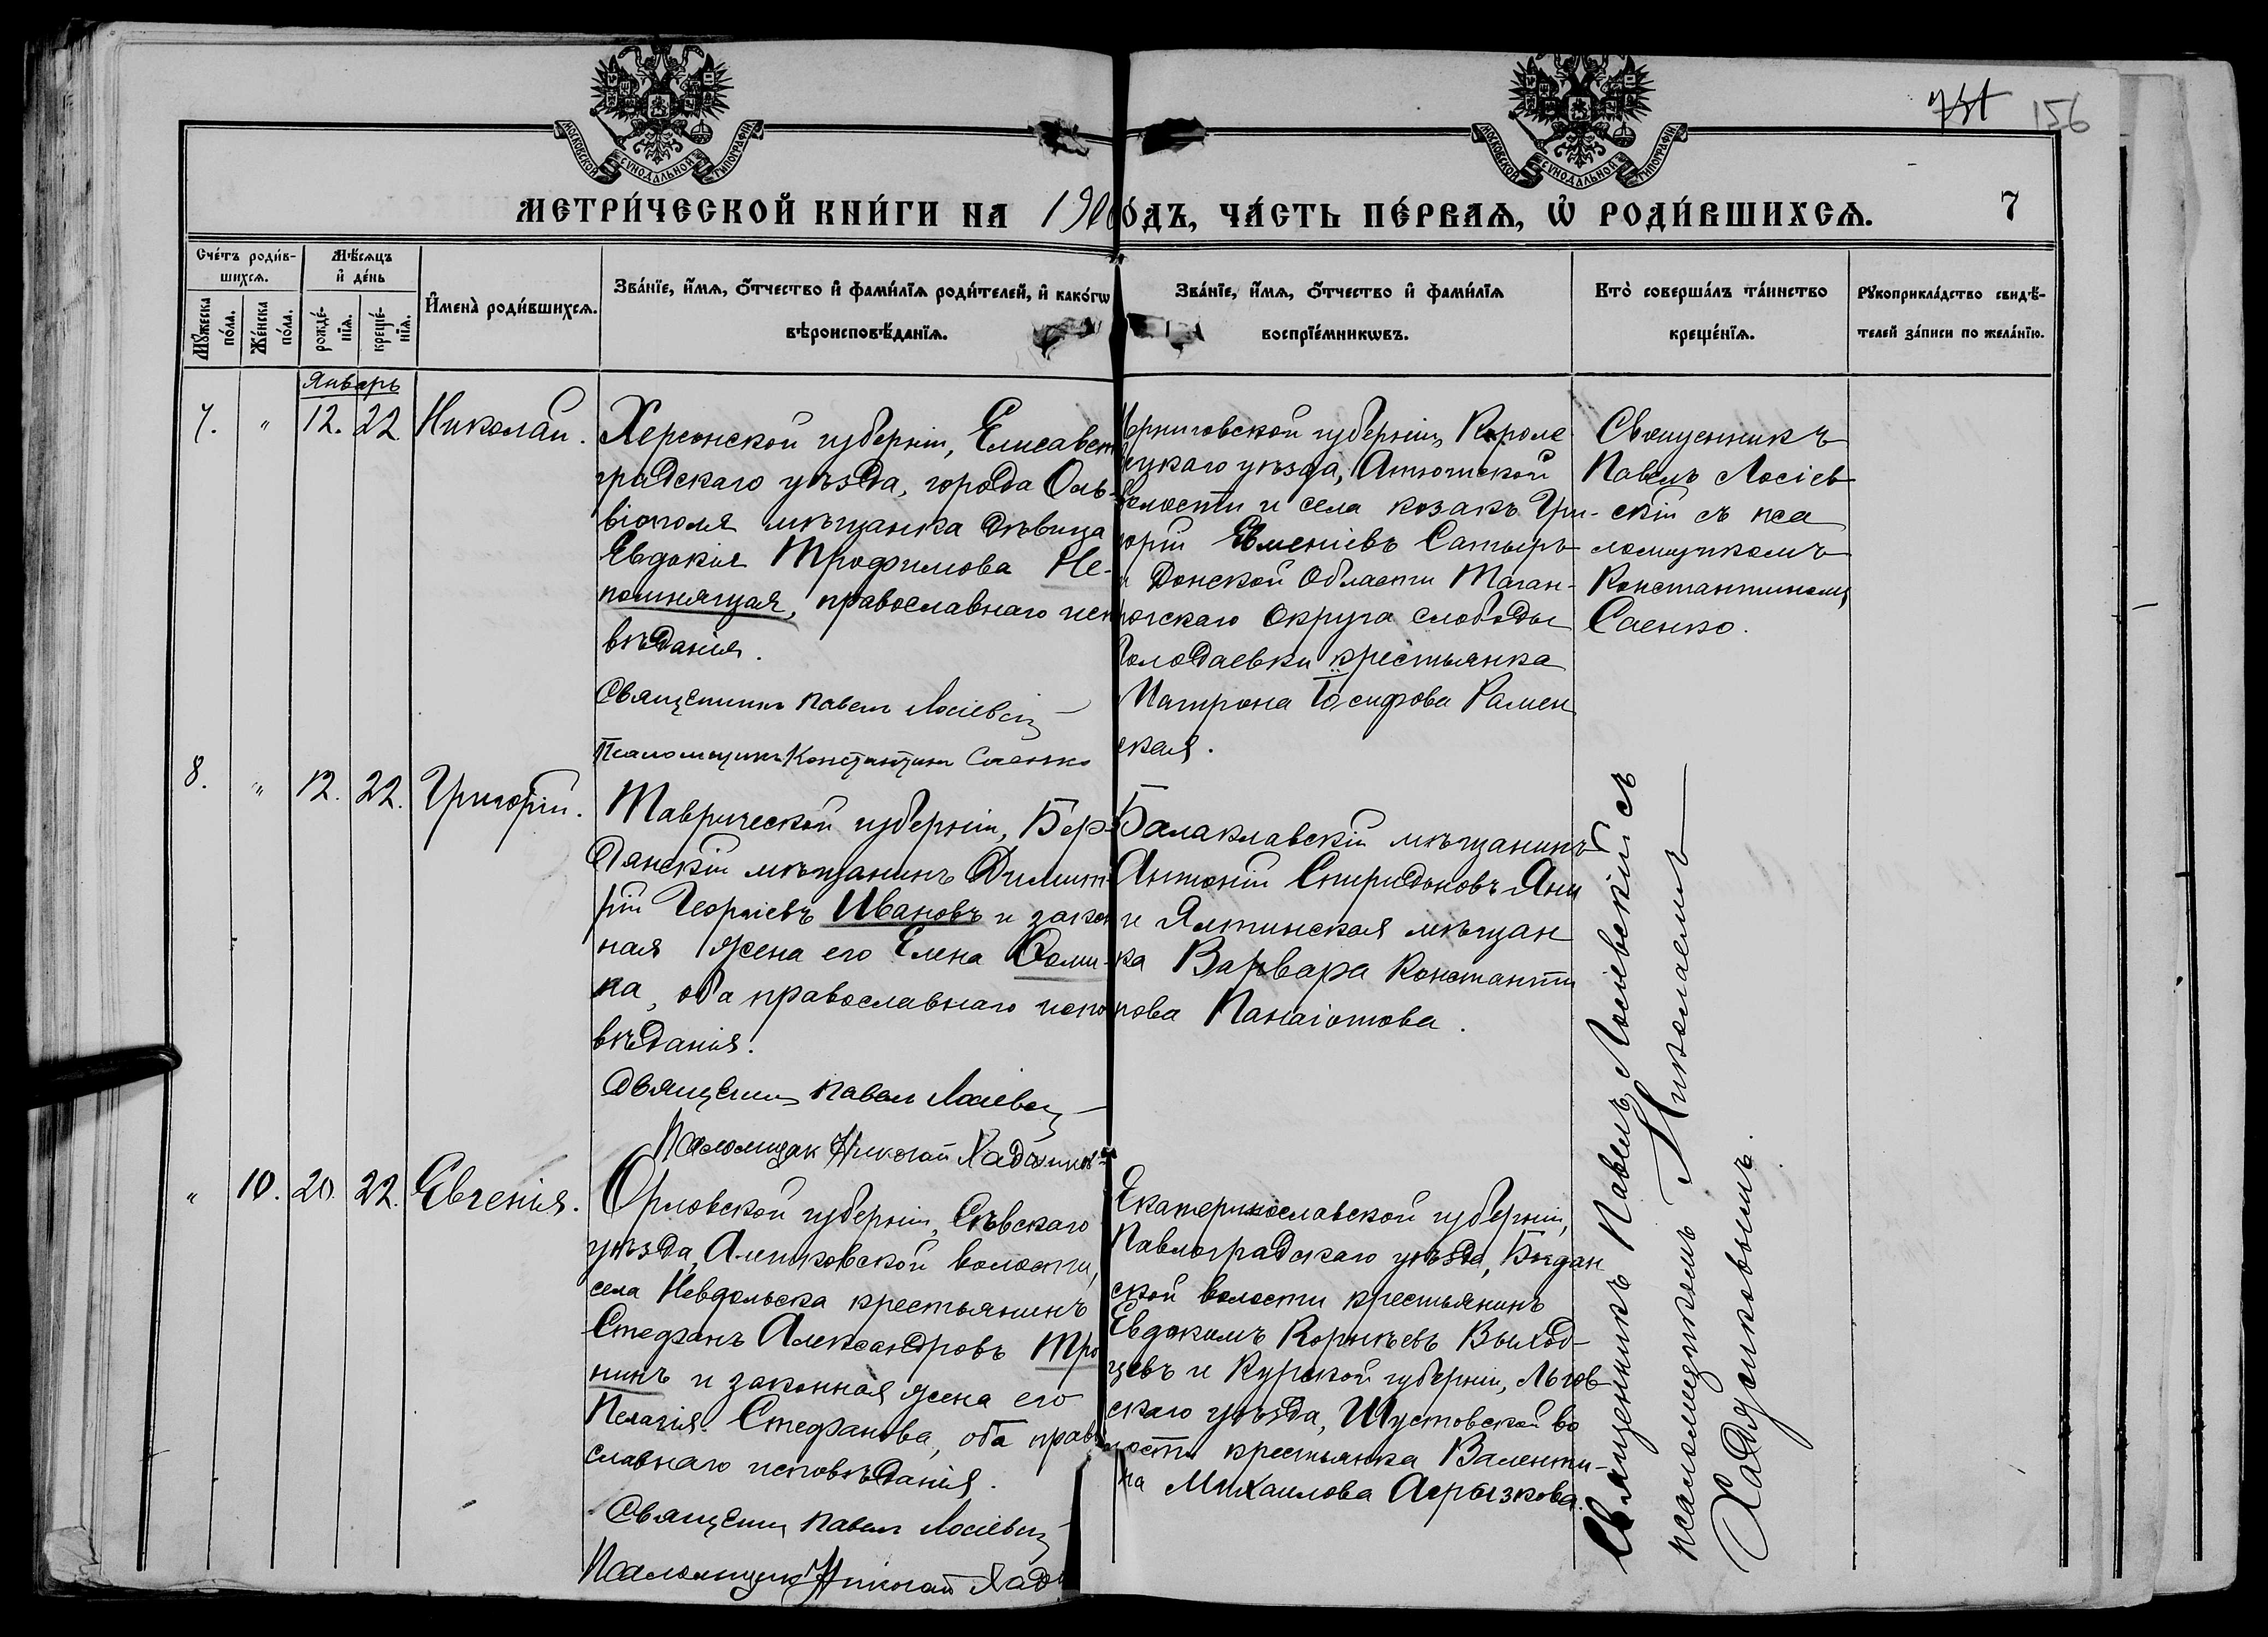 МОСКОВСКОЙ СѴНОДАЛЬНОЙ ТИПОГРАФІИ
МОСКОВСКОЙ СѴНОДАЛЬНОЙ ТИПОГРАФІИ
156
МЕТРИ́ЧЕСКОЙ КНИ́ГИ НА 190 ОДЪ, ЧА́СТЬ ПЕ́РВАѦ, Ѡ РОДИ́ВШИХСѦ.
7
Сче́тъ роди́в-
шихсѧ.
Мѣ́сѧцъ
и҆ де́нь
Мꙋ́жеска
по́ла.
Же́нска
по́ла.
рожде́-
нїѧ.
креще́-
нїѧ.
И҆мена̀ роди́вшихсѧ.
Зва́нїе, и҆́мѧ, ѻ҆́тчество и҆ фами́лїѧ роди́телей, и҆ како́гѡ
вѣроисповѣ́данїѧ.
Зва́нїе, и҆́мѧ, ѻ҆́тчество и҆ фами́лїѧ
воспрїе́мникѡвъ.
Кто̀ соверша́лъ та́инство
креще́нїѧ.
Рꙋкоприкла́дство свидѣ́-
телей за́писи по жела́нїю.
Январь
7. " 12. 22. Николай.
Херсонской губерніи, Елисавет
градскаго уѣзда, города Оль-
віополя мѣщанка дѣвица
Евдокія Трофимова Не-
помнящая, православнаго испо
вѣданія.
Священникъ Павелъ Лосіевскій
Псаломщикъ Константинъ Саенко
Черниговской губерніи, Кроле
вецкаго уѣзда, Атюшской
волости и села козакъ Гри-
горій Евменіевъ Сатыръ
и Донской Области Таган-
рогскаго Округа слободы
Голодаевки крестьянка
Матрона Іосифова Рамен
ская.
Священникъ
Павелъ Лосіев
скій съ пса
ломщикомъ
Константиномъ
Саенко.
8. " 12. 22. Григорій.
Таврической губерніи, Бер-
дянскій мѣщанинъ Димит-
рій Георгіевъ Ивановъ и закон
ная жена его Елена Ѳоми-
на, оба православнаго испо
вѣданія.
Священникъ Павелъ Лосіевскій
Псаломщик Николай Хаджиновъ
Балаклавскій мѣщанинъ
Антоній Спиридоновъ Яни
и Ялтинская мѣщан
ка Варвара Константи
нова Панаіотова.
" 10. 20. 22. Евгенія.
Орловской губерніи, Сѣвскаго
уѣзда, Алешковской волости,
села Невдольска крестьянинъ
Стефанъ Александровъ Тро
нинъ и законная жена его
Пелагія Стефанова, оба право
славнаго исповѣданія.
Священникъ Павелъ Лосіевскій
Псаломщикъ Николай
Екатеринославской губерніи,
Павлоградскаго уѣзда, Богдан
ской волости крестьянинъ
Евдокимъ Корнѣевъ Выход-
цевъ и Курской губерніи, Льгов
скаго уѣзда, Шустовской во
лости крестьянка Валенти-
на Михаилова
Священникъ Павелъ Лосіевскій съ
псаломщикомъ Николаемъ